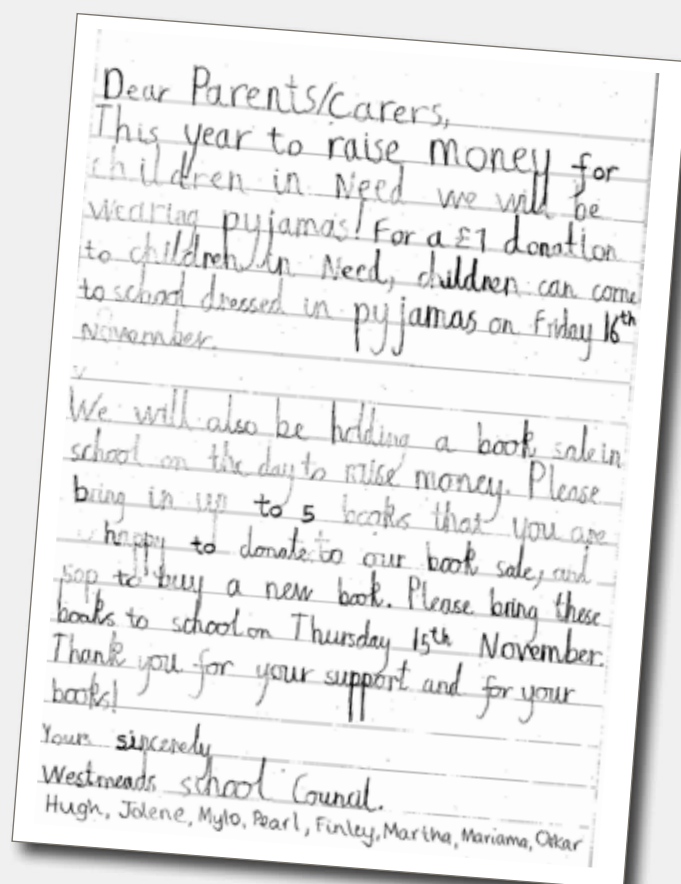 Dear Parents/Carers,
This year to raise money for
children in Need we will be
wearing pyjamas! For a £1 donation
to children in Need, children can come
to school dressed in pyjamas on Friday 16th
November.
We will also be holding a book sale in
school on the day to raise money. Please
bring in up to 5 books that you are
happy to donate to our book sale, and
50p to buy a new book. Please bring these
books to school on Thursday 15th November.
Thank you for your support and for your
books!
Yours sincerely
Westmeads school Council.
Hugh, Jolene, Mylo, Pearl, Finley, Martha, Mariama, Oskar